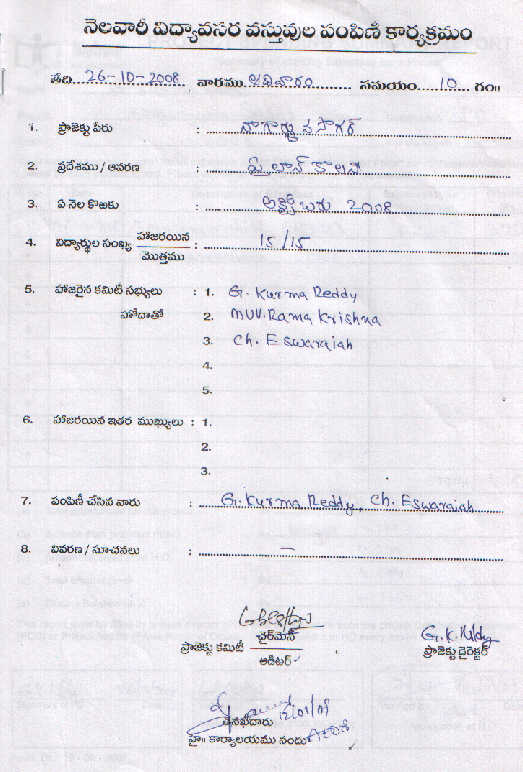 నెలవారీ విద్యావసర వస్తువుల పంపిణీ కార్యక్రమం
తేది 26-10-2008 వారము ఆదివారం సమయం 10 గం॥
1. ప్రాజెక్టు పేరు : నాగార్జున సాగర్
2. ప్రదేశము / ఆవరణ : హైలాన్ కాలని
3. ఏ నెల కొఱకు : అక్టోబరు 2008
4. విద్యార్థుల సంఖ్య హాజరయిన / మొత్తము : 15/15
5. హాజరైన కమిటీ సభ్యులు : 1. G. Kurma Reddy
హోదాతో 2. MVV. Rama Krishna
3. Ch. Eswaraiah
4.
5.
6. హాజరయిన ఇతర ముఖ్యులు : 1.
2.
3.
7. పంపిణీ చేసిన వారు : G. Kurma Reddy, Ch. Eswaraiah
8. వివరణ / సూచనలు : —
ప్రాజెక్టు కమిటీ ఛైర్‌మెన్
ఆడిటర్
G. K. Reddy
ప్రాజెక్టు డైరెక్టర్
తనిఖీదారు
హై॥ కార్యాలయము నందు